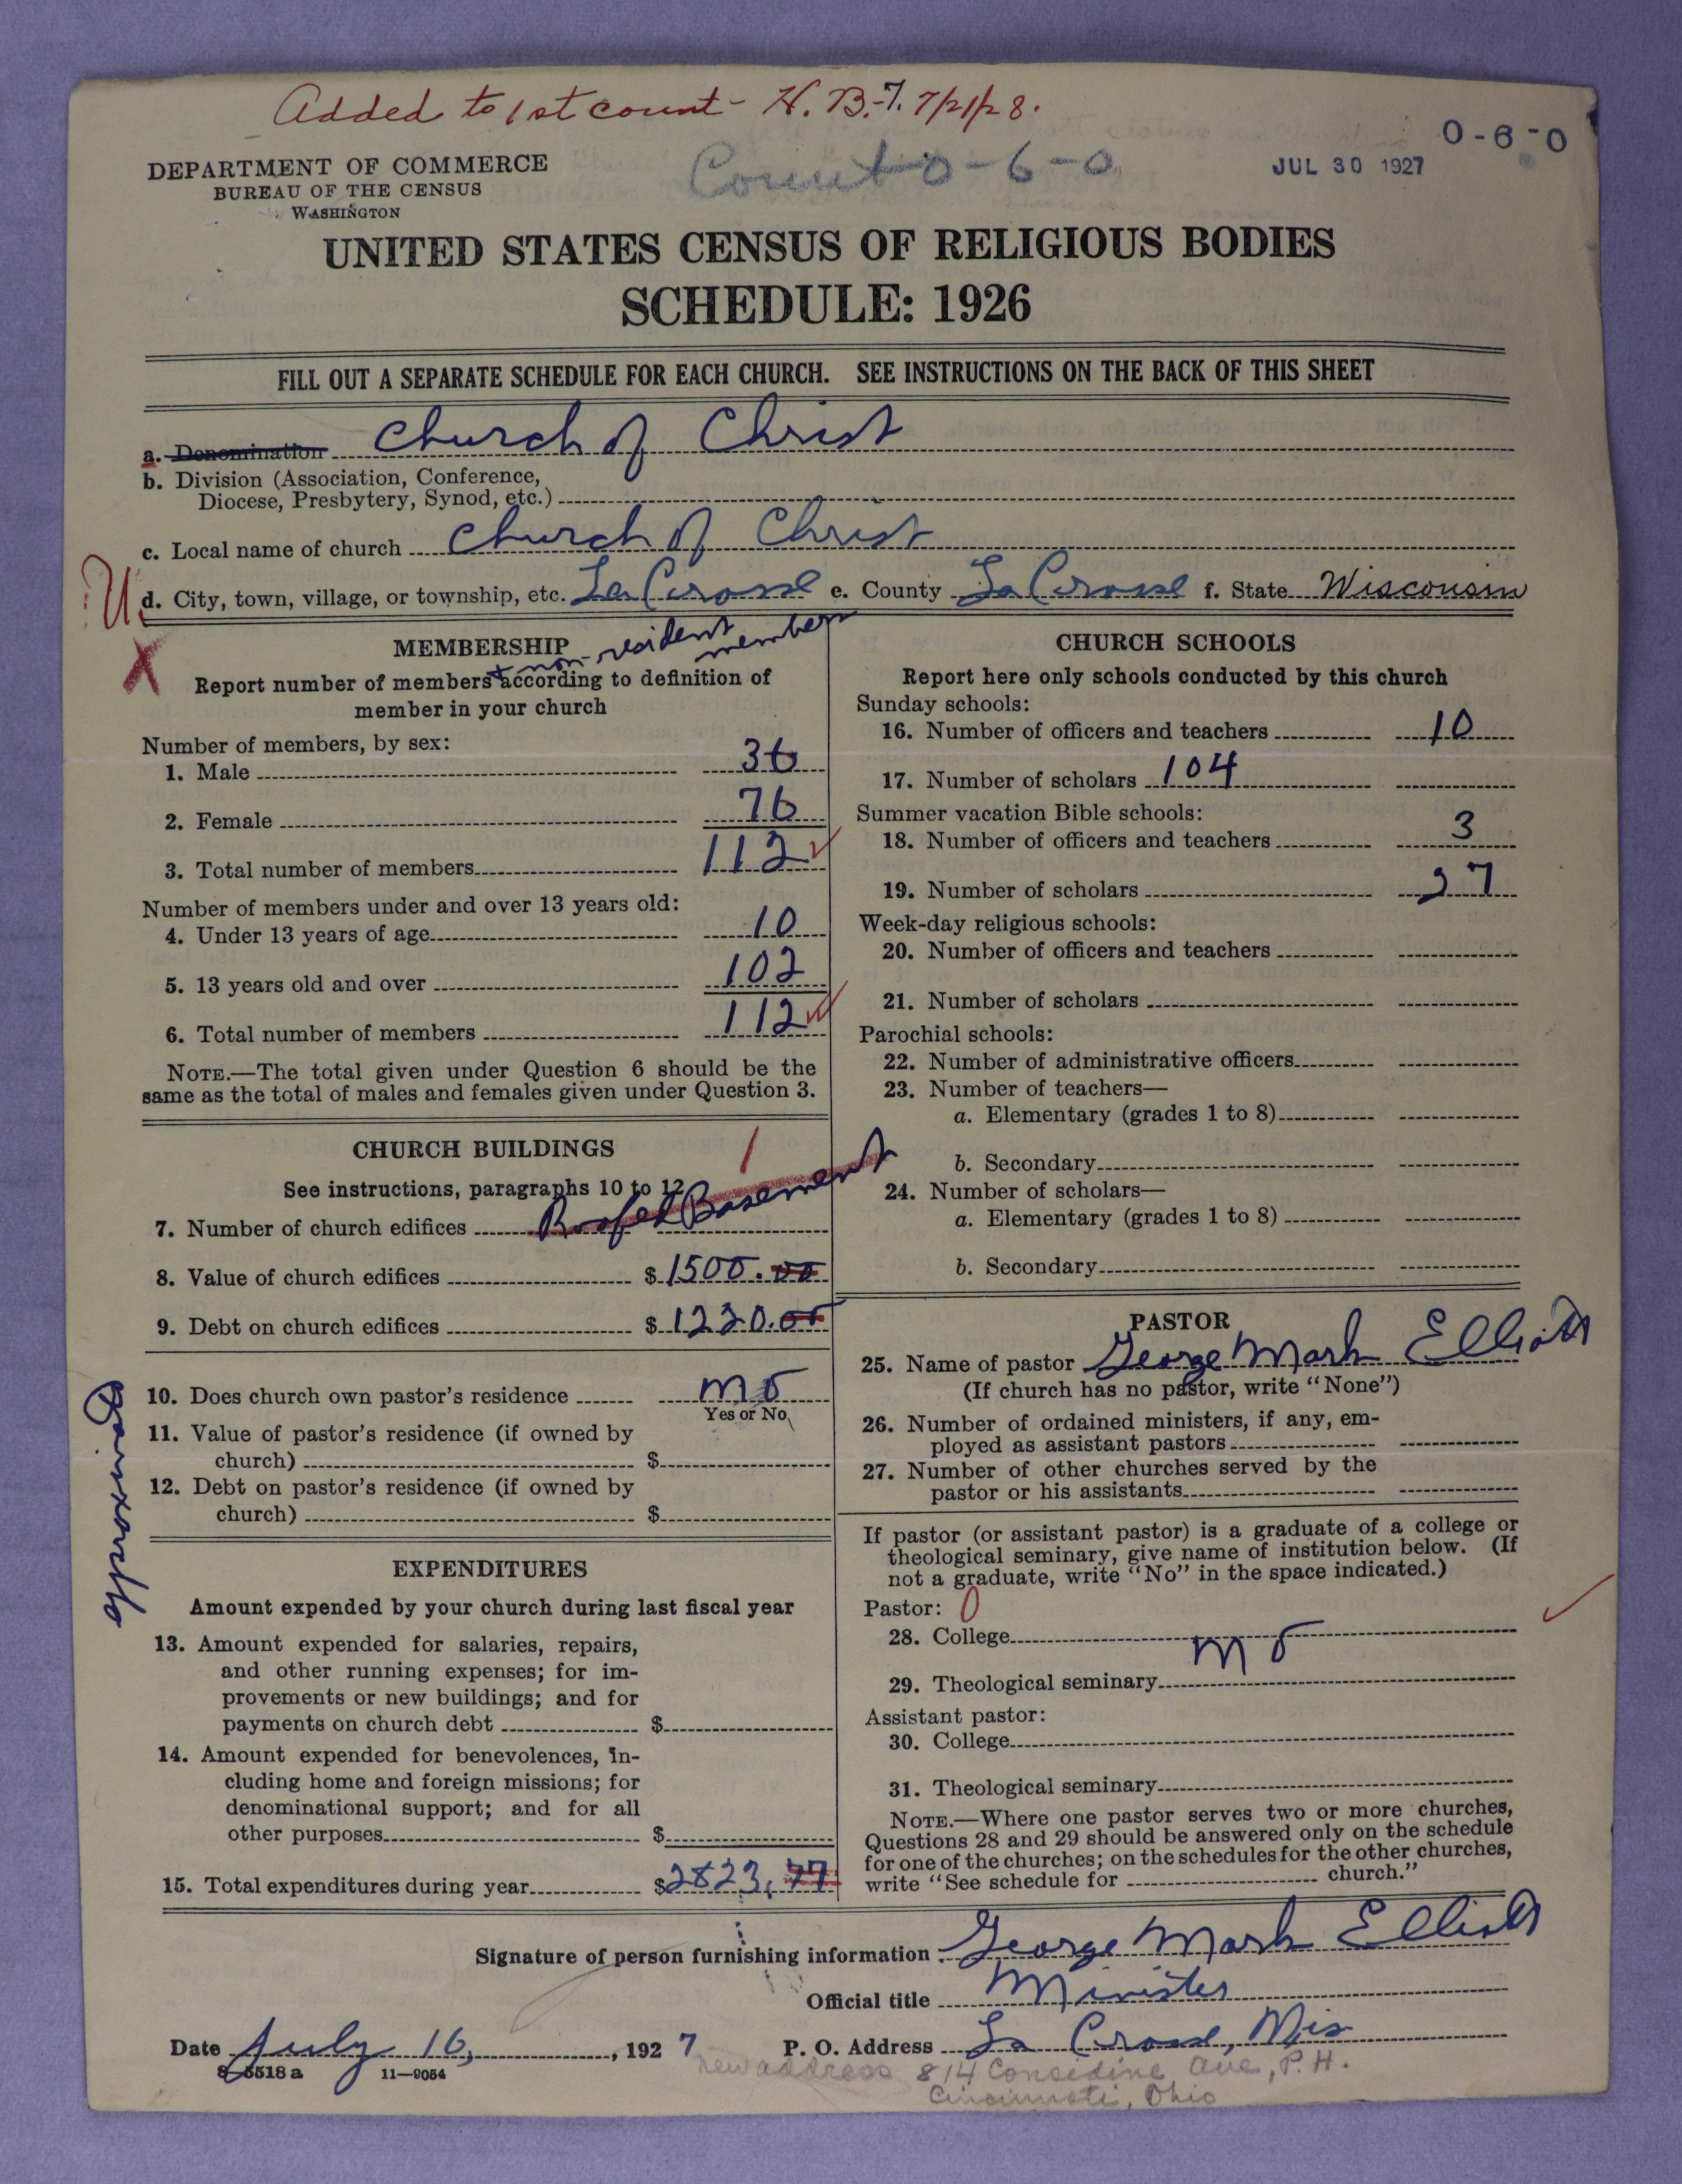 Added to 1st count - H. B.-7. 7/21/28.
Count 0-6-0
0-6-0
JUL 30 1927
DEPARTMENT OF COMMERCE
BUREAU OF THE CENSUS
WASHINGTON
UNITED STATES CENSUS OF RELIGIOUS BODIES
SCHEDULE: 1926
FILL OUT A SEPARATE SCHEDULE FOR EACH CHURCH. SEE INSTRUCTIONS ON THE BACK OF THIS SHEET
a. Denomination Church of Christ
b. Division (Association, Conference,
Diocese, Presbytery, Synod, etc.)
c. Local name of church Church of Christ
U
d. City, town, village, or township, etc. La Crosse e. County La Crosse f. State Wisconsin
X
MEMBERSHIP
+ non-resident members
Report number of members according to definition of
member in your church
Number of members, by sex:
1. Male 36
2. Female 76
3. Total number of members 112
Number of members under and over 13 years old:
4. Under 13 years of age 10
5. 13 years old and over 102
6. Total number of members 112
NOTE.—The total given under Question 6 should be the
same as the total of males and females given under Question 3.
CHURCH BUILDINGS
1
See instructions, paragraphs 10 to 12
7. Number of church edifices Roofed Basement
8. Value of church edifices $ 1500.00
9. Debt on church edifices $ 1220.00
10. Does church own pastor's residence no
Yes or No
11. Value of pastor's residence (if owned by
church) $
12. Debt on pastor's residence (if owned by
church) $
EXPENDITURES
Amount expended by your church during last fiscal year
13. Amount expended for salaries, repairs,
and other running expenses; for im-
provements or new buildings; and for
payments on church debt $
14. Amount expended for benevolences, in-
cluding home and foreign missions; for
denominational support; and for all
other purposes $
15. Total expenditures during year $2823,77
CHURCH SCHOOLS
Report here only schools conducted by this church
Sunday schools:
16. Number of officers and teachers 10
17. Number of scholars 104
Summer vacation Bible schools:
18. Number of officers and teachers 3
19. Number of scholars 27
Week-day religious schools:
20. Number of officers and teachers
21. Number of scholars
Parochial schools:
22. Number of administrative officers
23. Number of teachers—
a. Elementary (grades 1 to 8)
b. Secondary
24. Number of scholars—
a. Elementary (grades 1 to 8)
b. Secondary
PASTOR
25. Name of pastor George Mark Elliott
(If church has no pastor, write "None")
26. Number of ordained ministers, if any, em-
ployed as assistant pastors
27. Number of other churches served by the
pastor or his assistants
If pastor (or assistant pastor) is a graduate of a college or
theological seminary, give name of institution below. (If
not a graduate, write "No" in the space indicated.)
Pastor: 0
28. College
no
29. Theological seminary
Assistant pastor:
30. College
31. Theological seminary
NOTE.—Where one pastor serves two or more churches,
Questions 28 and 29 should be answered only on the schedule
for one of the churches; on the schedules for the other churches,
write "See schedule for church."
Signature of person furnishing information George Mark Elliott
Official title Minister
Date July 16, 1927 P. O. Address La Crosse, Wis
8-5518 a 11—9054
new address 814 Considine Ave, P. H.
Cincinnati, Ohio